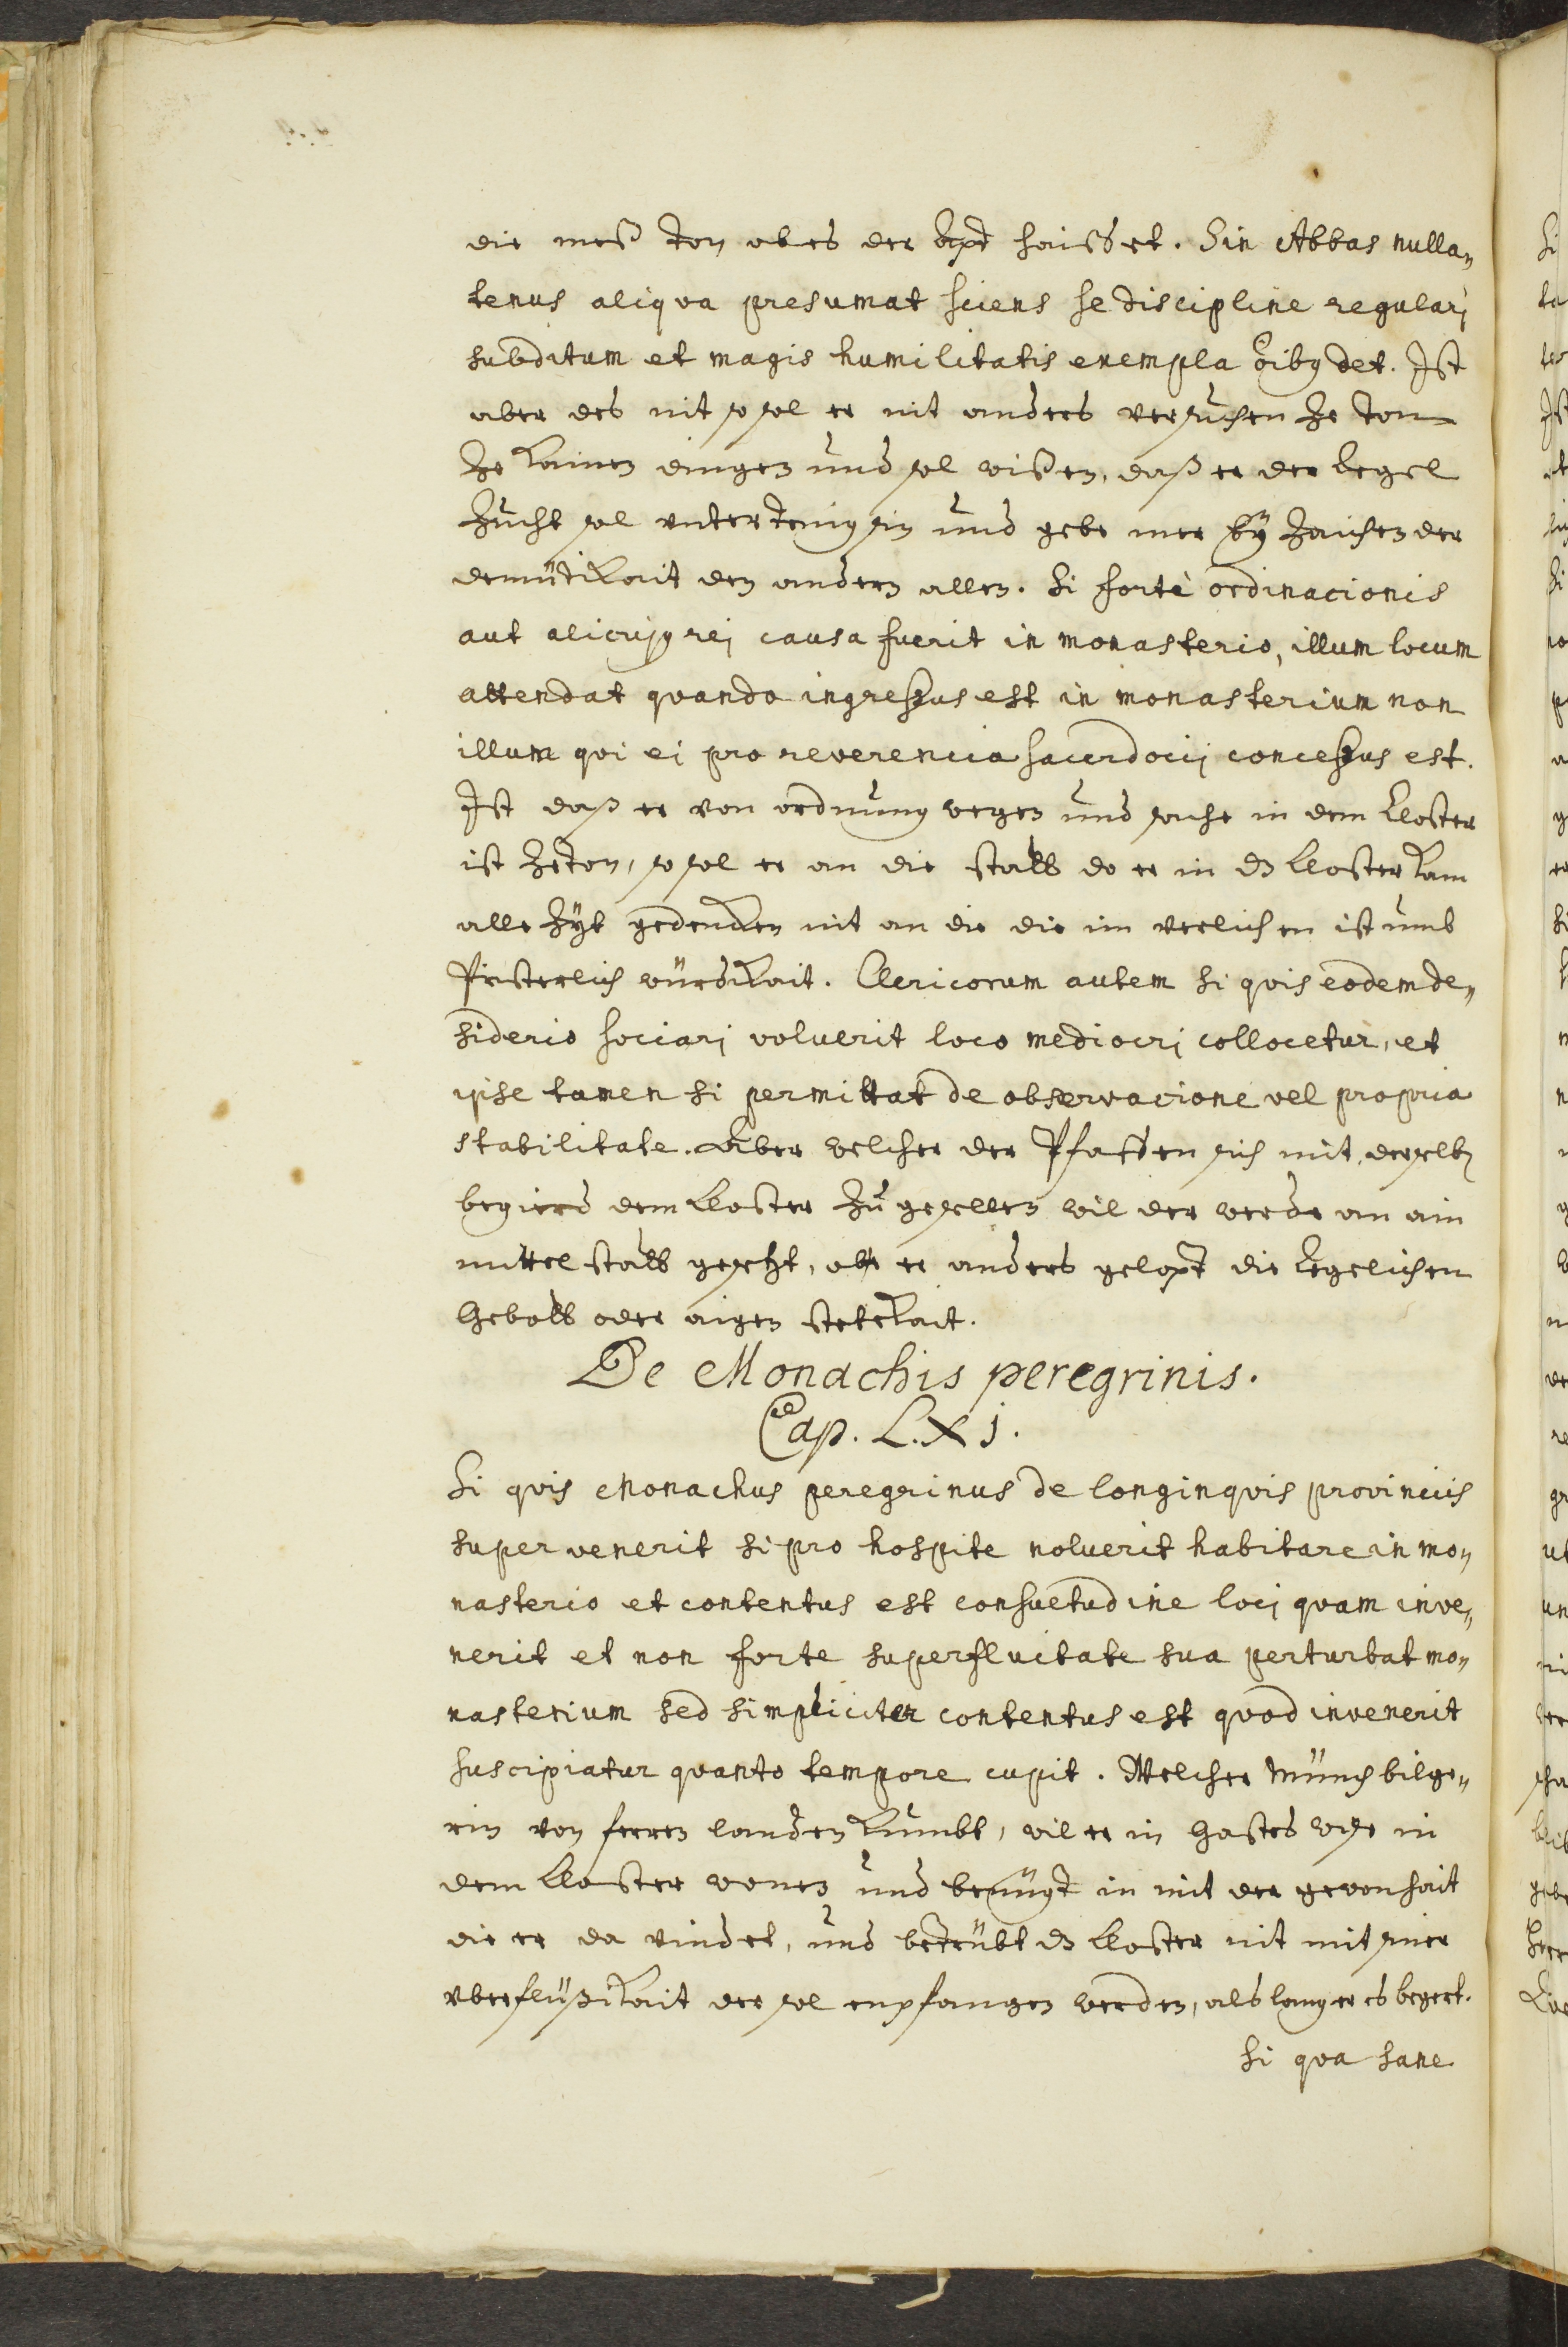 die meß ton ob es der Apt haisset. Sin Abbas nulla„
tenus aliqva presumat sciens se discipline regularj
subditum et magis humilitatis exempla oib9 det. Ist
aber des nit so sol er nit anders versuchen ze ton
ze kainen dingen und sol wißen, daß er der Regel
zucht sol untertenig sin und gebe mer by zaichen der
demütikait den andern allen. Si forte ordinacionis
aut alicuj9 rej causa fuerit in monasterio, illum locum
attendat qvando ingressus est in monasterium non
illum qvi ei pro reverencia sacerdocij concessus est.
Ist daß er von ordnung wegen und sache in dem Closter
ist zeton, so sol er an die statt do er in dz Closter kam
alle zyt gedencken nit an die die im verlichen ist umb
Priesterlich würdikait. Clericorum autem si qvis eodem de„
siderio sociarj voluerit loco mediocrj collocetur, et
ipse tamen si permittat de observacione vel propria
stabilitate. Aber welcher der Pfaffen sich mit derselben
begierd dem Closter zu gesellen wil der werde an ain
mittel statt gesetzt, ob er anders gelopt die Regelichen
Gebott oder aigen stetekait.
De Monachis peregrinis.
Cap. L.X j.
Si qvis Monachus peregrinus de longinqvis provinciis
supervenerit si pro hospite noluerit habitare in mo„
nasterio et contentus est consuetudine locj qvam inve„
nerit et non forte superfluitate sua perturbat mo„
nasterium sed simpliciter contentus est qvod invenerit
suscipiatur qvanto tempore cupit. Welcher Münch bilge„
rin von ferren landen kumbt, wil er in Gastes wise in
dem Closter wonen und benügt in mit der gewonhait
die er da vindet, und betrübt dz Closter nit mit siner
uberflüßikait der sol enpfangen werden, als lang er es begert.
Si qva sane